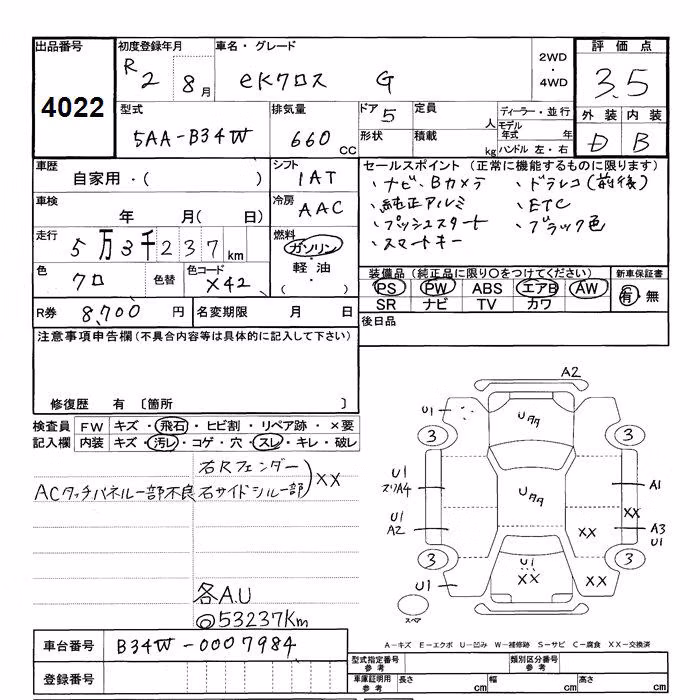 出品番号
4022
初度登録年月
R2 8月
車名・グレード
eKクロス G
2WD
・
4WD
評価点
3.5
型式
5AA-B34W
排気量
660 CC
ドア 5
形状
定員 人
積載 kg
ディーラー・並行
モデル
年式 年
ハンドル 左・右
外装 内装
D B
車歴
自家用・( )
シフト
IAT
車検
年 月( 日)
冷房
AAC
走行
5万3千237km
燃料
ガソリン
・
軽油
・
( )
色
クロ
色替
色コード
X42
R券 8,700 円
名変期限 月 日
セールスポイント (正常に機能するものに限ります)
・ナビ、Bカメラ ・ドラレコ(前後)
・純正アルミ ・ETC
・プッシュスタート ・ブラック色
・スマートキー
装備品 (純正品に限り○をつけてください)
新車保証書
PS PW ABS エアB AW
SR ナビ TV カワ
有・無
後日品
注意事項申告欄(不具合内容等は具体的に記入して下さい)
修復歴 有 〔箇所 〕
検査員
記入欄
FW キズ・飛石・ヒビ割・リペア跡・×要
内装 キズ・汚レ・コゲ・穴・スレ・キレ・破レ
右Rフェンダー
ACタッチパネル一部不良 右サイドシル一部 )XX
各A.U
◎53237Km
車台番号
B34W-0007984
登録番号
A2
U1
Uタタ
3
3
U1
スリA4
Uタタ
A1
U1
A2
XX
XX
A3
U1
3
U1
XX
3
XX
U1
スペア
A-キズ E-エクボ U-凹み W-補修跡 S-サビ C-腐食 XX-交換済
型式指定番号
参考
類別区分番号
参考
車庫証明用
参考
長さ cm
幅 cm
高さ cm